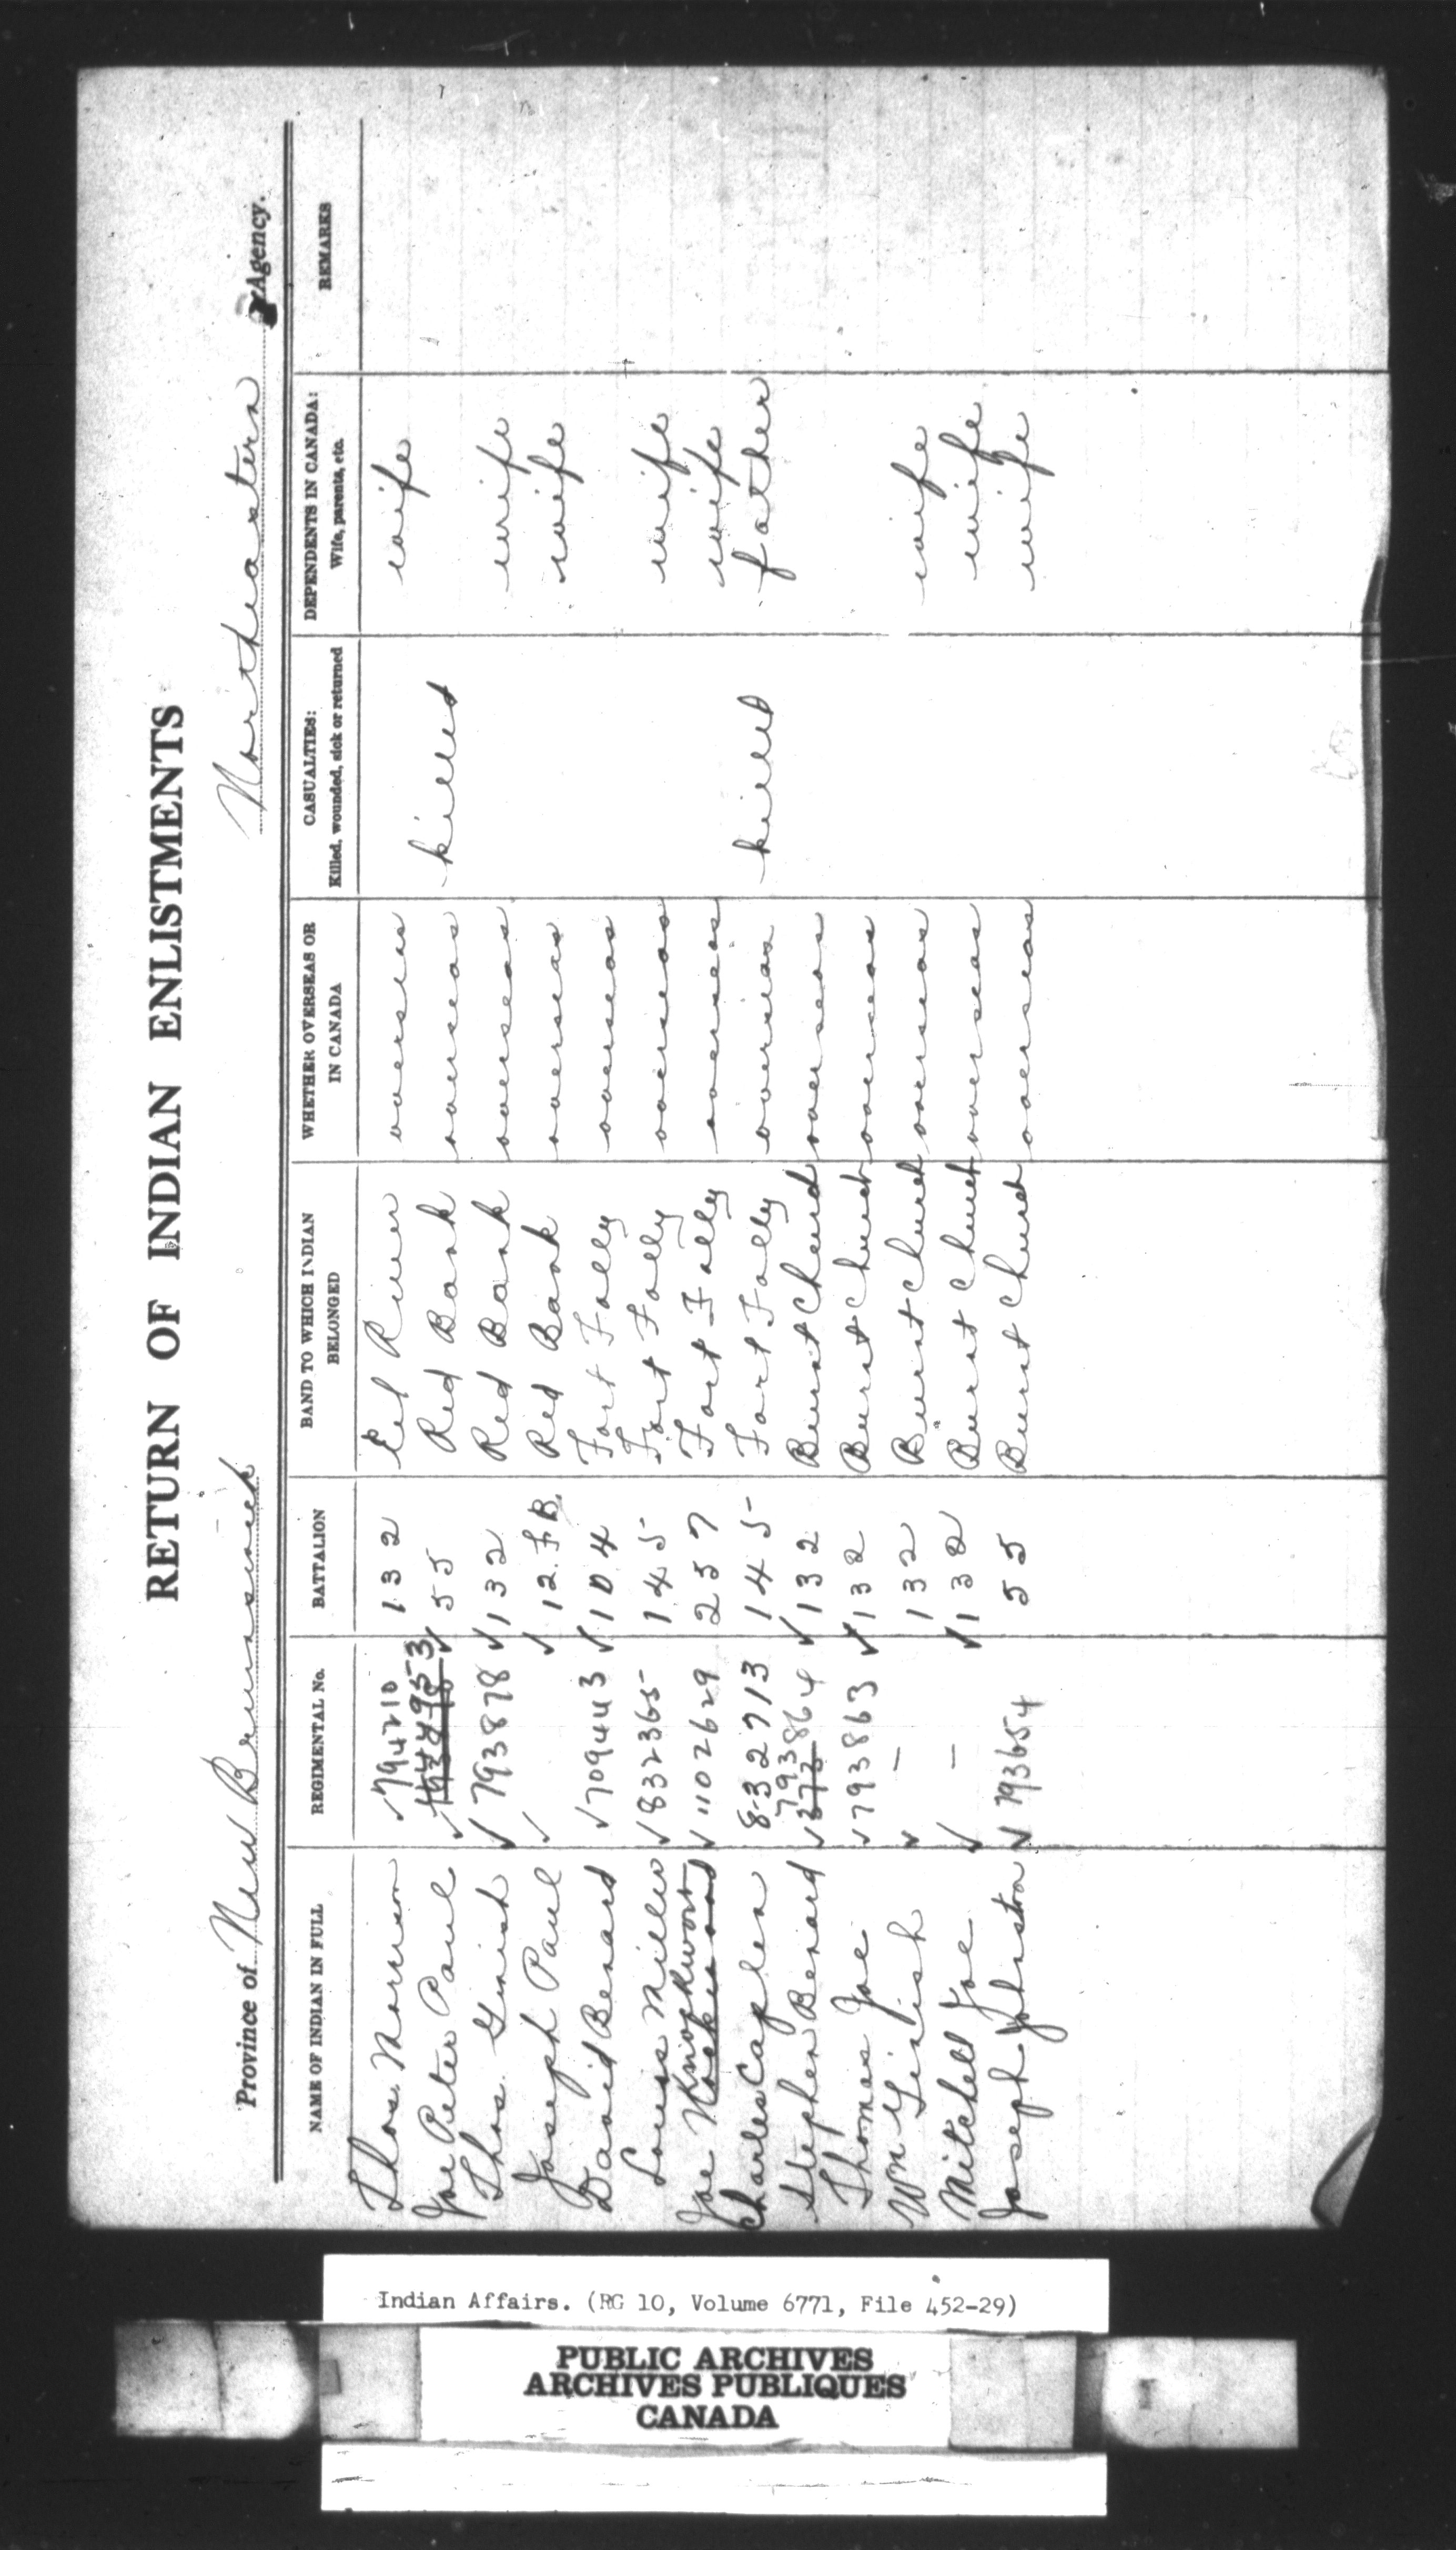 RETURN OF INDIAN ENLISTMENTS
Province of New Brunswick Northeastern Agency.
NAME OF INDIAN IN FULL REGIMENTAL No. BATTALION BAND TO WHICH INDIAN BELONGED WHETHER OVERSEAS OR IN CANADA CASUALTIES: Killed, wounded, sick or returned DEPENDENTS IN CANADA: Wife, parents, etc. REMARKS
Thos. Morrison ✓794210 132 Eel River overseas wife
Joe Peter Paul ✓ ✓ 55 Red Bank overseas killed
Thos. Ginish ✓ 793878 ✓ 132 Red Bank overseas wife
Joseph Paul ✓ ✓ 12. F.B. Red Bank overseas wife
David Benard ✓709443 ✓ 104 Fort Folly overseas
Louis Miller ✓ 832365 145 Fort Folly overseas wife
Joe Knockwood ✓ 1102629 257 Fort Folly overseas wife
Charles Caplen 832713 145 Fort Folly overseas killed father
Stephen Benard ✓ 793864 ✓ 132 Burnt Church overseas
Thomas Joe ✓ 793863 ✓ 132 Burnt Church overseas
Wm Ginish ✓ – 132 Burnt Church overseas wife
Mitchell Joe ✓ – ✓ 132 Burnt Church overseas wife
Joseph Johnston ✓ 793654 55 Burnt Church overseas wife
Indian Affairs. (RG 10, Volume 6771, File 452-29)
PUBLIC ARCHIVES
ARCHIVES PUBLIQUES
CANADA